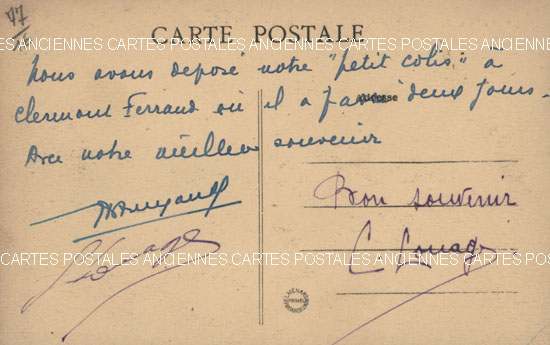 77
CARTE POSTALE
ANCIENNES CARTES POSTALES ANCIENNES CARTES POSTALES ANCIENNES CARTES POSTALES
Nous avons déposé notre "petit colis" à
Adresse
Clermont Ferrand où il a passé deux jours.
Avec notre meilleur souvenir
Bon souvenir
CARTES POSTALES ANCIENNES CARTES POSTALES ANCIENNES CARTES POSTALES ANCIENNES